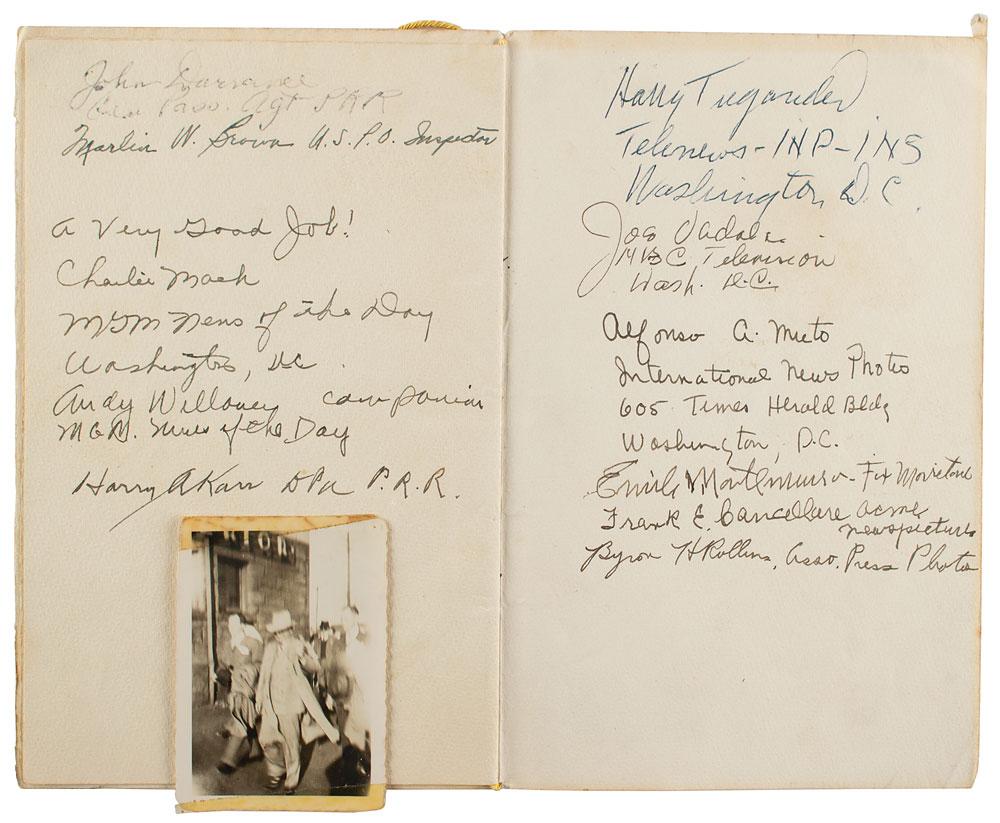 John Dorrance
Gen Pass. Agt P.R.R.
Marlin W. Brown U.S.P.O. Inspector
A Very Good Job!
Charlie Mack
MGM News of the Day
Washington, DC
Andy Willoney companion
M.G.M. News of the Day
Harry A Karr DPA P.R.R.
Harry Tugander
Telenews-INP-INS
Washington D.C.
Joe Vadala
NBC Television
Wash. D.C.
Alfonso A. Muto
International News Photos
605 Times Herald Bldg
Washington, D.C.
Emile Montemurro - Fox Movietone
Frank E. Cancellare Acme
Newspictures
Byron H Rollins, Asso. Press Photos